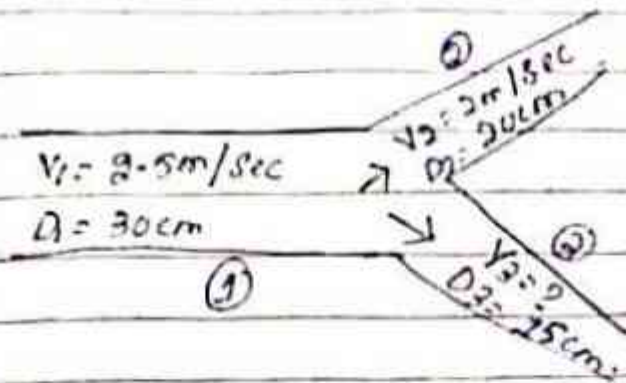 ②
V2 = 2m/sec
D2 = 20cm
V1 = 2.5m/sec
D1 = 30cm
①
②
V3 = ?
D3 = 15cm.